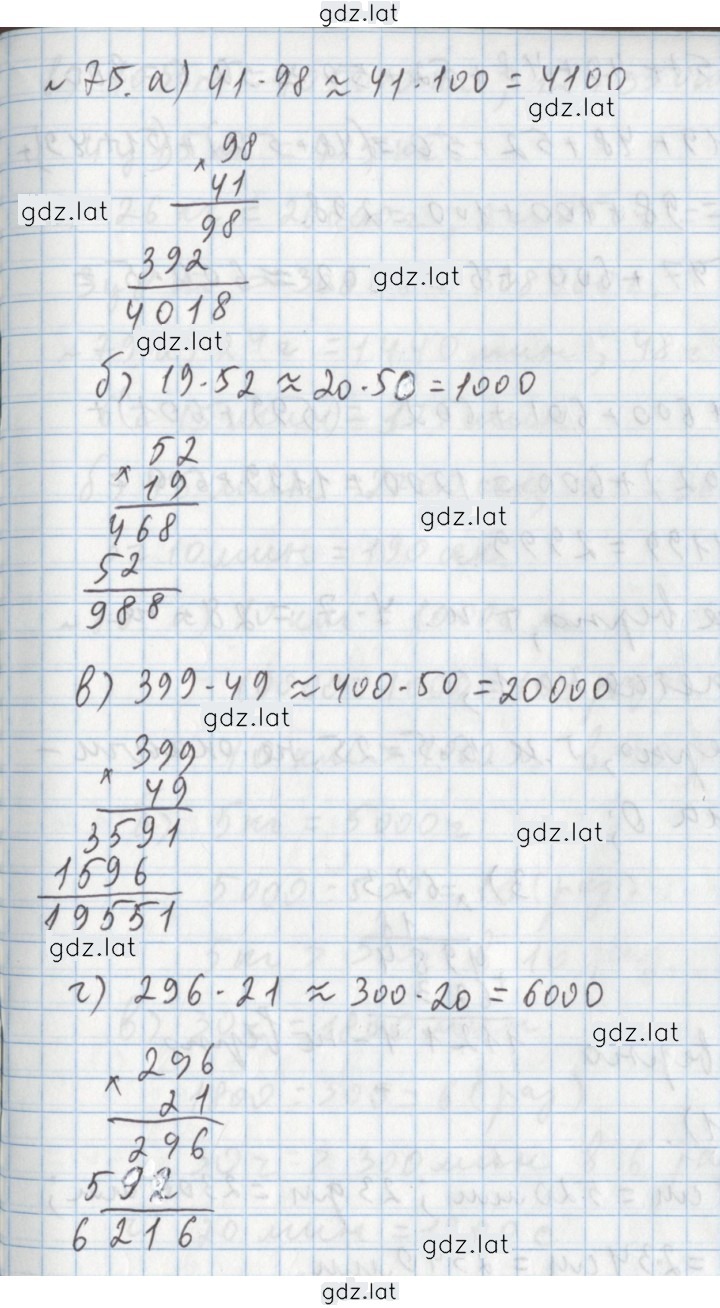 gdz.lat
№ 75. а) 41 · 98 ≈ 41 · 100 = 4100
gdz.lat
× 98
41
gdz.lat
98
392
gdz.lat
4018
gdz.lat
б) 19 · 52 ≈ 20 · 50 = 1000
52
× 19
468
gdz.lat
52
988
в) 399 · 49 ≈ 400 · 50 = 20000
gdz.lat
399
× 49
3591
gdz.lat
1596
19551
gdz.lat
г) 296 · 21 ≈ 300 · 20 = 6000
gdz.lat
× 296
21
296
592
6216
gdz.lat
gdz.lat